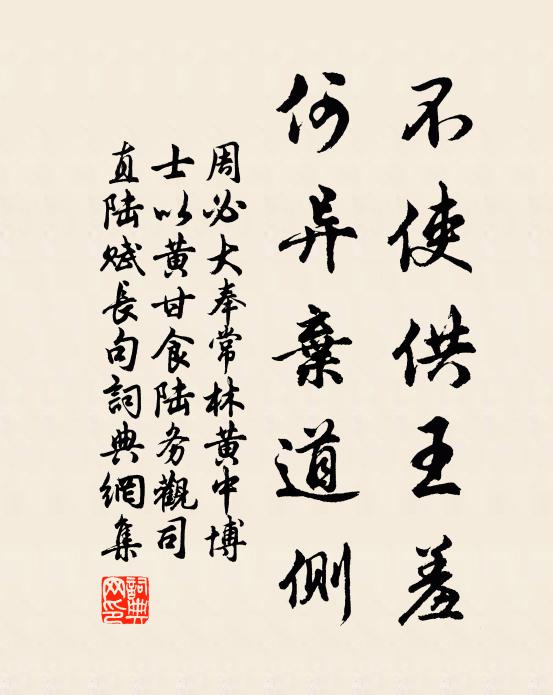 不使供王羞
何异棄道側
周必大奉常林黄中博
士以黄甘食陆务觀司
直陆赋長句詞典網集
詞典網印